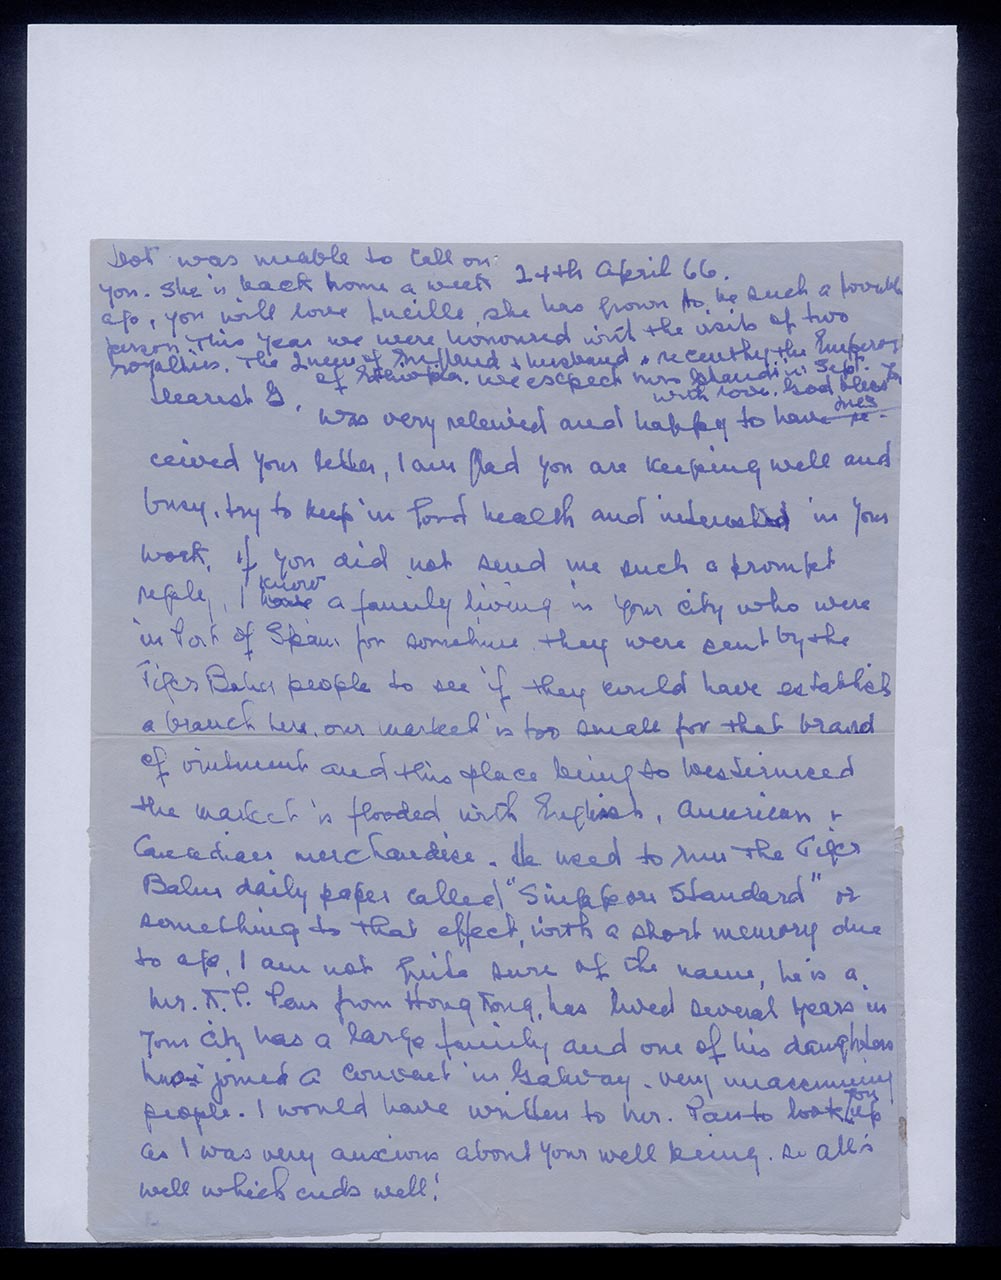 Dot was unable to call on
you. She is back home a week 24th April 66.
ago, you will love Lucille, she has grown to be such a lovable
person. This year we were honoured with the visits of two
royalties. The Queen of England & husband & recently the Emperor
of Ethiopia. we expect Mrs in Sept.
with love. God bless you
Dearest G.
was very relieved and happy to have re-
ceived your letter, I am glad you are keeping well and
busy. try to keep in good health and interested in your
work. if you did not send me such a prompt
reply, I know a family living in your city who were
in Port of Spain for sometime. they were sent by the
Tiger Balm people to see if they could have establish
a branch here. our market is too small for that brand
of ointment and this place being so westernised
the market is flooded with English, American &
Canadian merchandise. He used to run the Tiger
Balm daily paper called "Singapore Standard" or
something to that effect, with a short memory due
to age, I am not quite sure of the name, he is a
Mr. from Hong Kong, has lived several years in
your city has a large family and one of his daughters
has joined a convent in Galway. very unassuming
people. I would have written to Mr. to look you up
as I was very anxious about your well being. so all's
well which ends well!